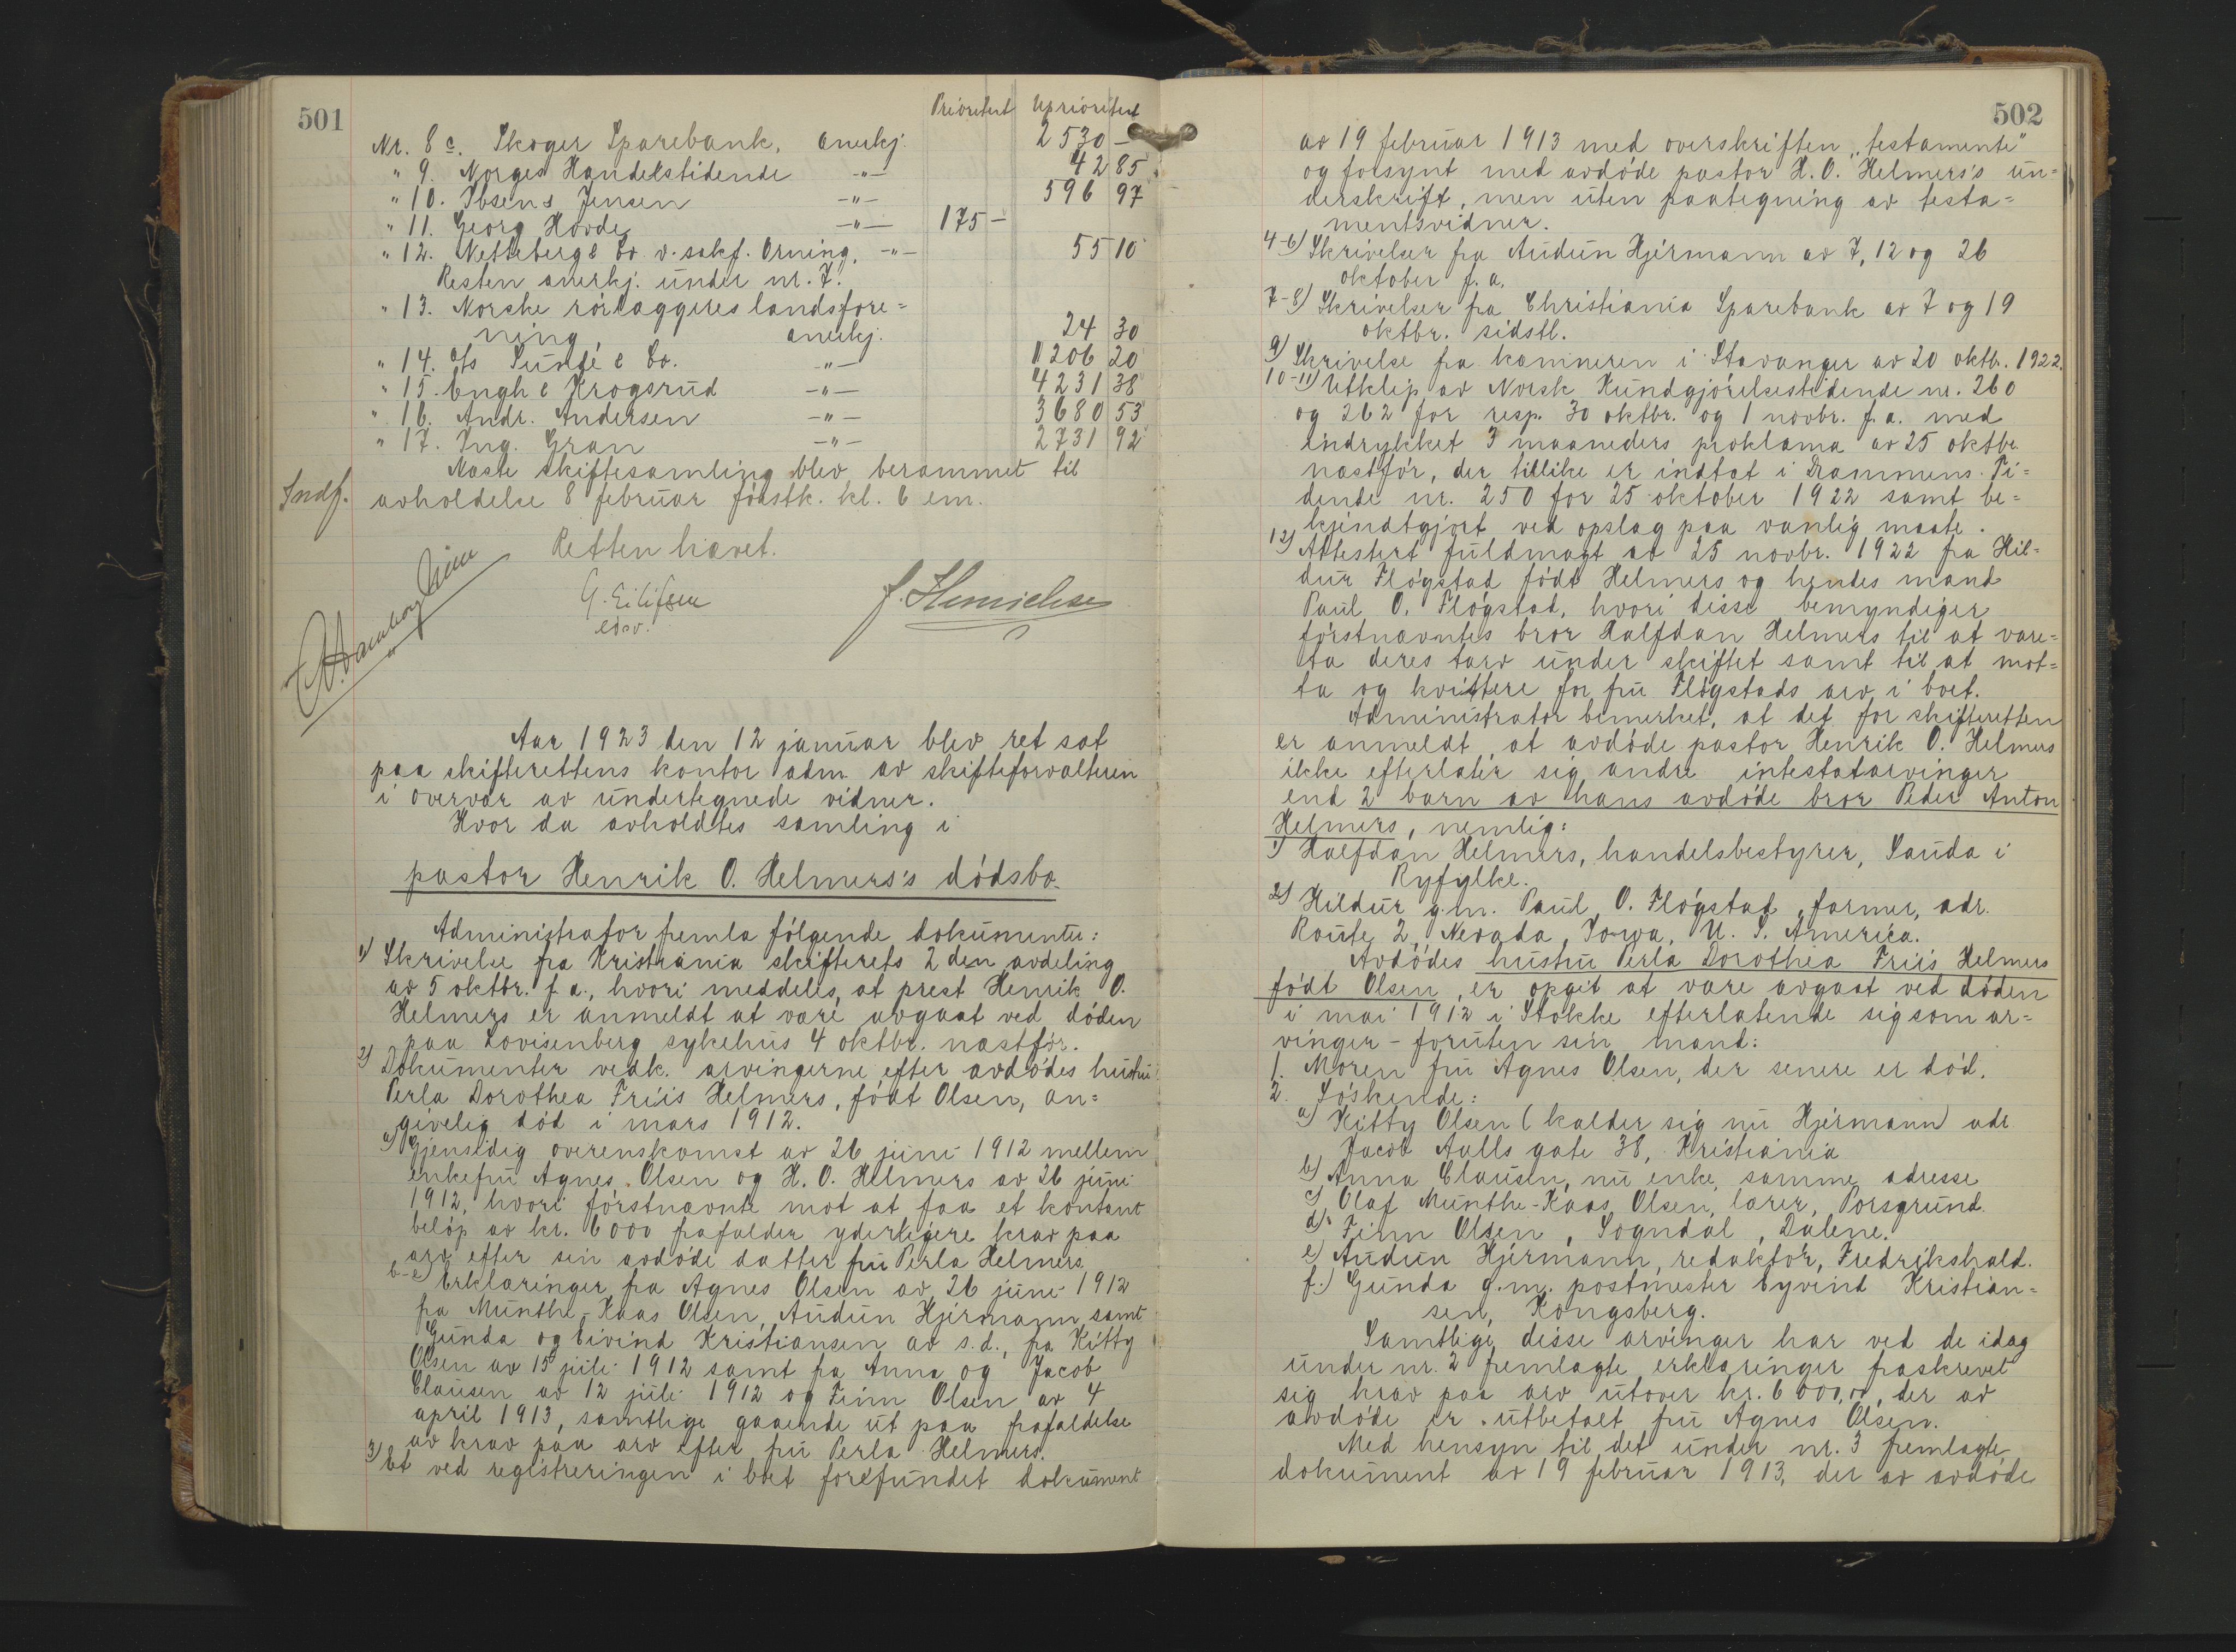 501
Prioritert Uprioritert
Nr. 8 c. Skoger Sparebank, anerkj. 2530 –
" 9. Norges Handelstidende –"– 42 85
" 10. Ibsen & Jensen –"– 596 97
" 11. Georg Hovde –"– 175 –
" 12. Netteberg & Co. v. sakf. Orning, –"– 55 10
Resten anerkj. under nr. 7.
" 13. Norske rørlæggeres landsfore=
ning, anerkj. 24 30
" 14. A/s Sunde & Co. –"– 1206 20
" 15. Engh & Krogsrud –"– 4231 38
" 16. Andr. Andersen –"– 3680 53
" 17. Ing. Gran –"– 2731 92
Næste skiftesamling blev berammet til
Indf. avholdelse 8 februar førstk. kl. 6 em.
Retten hævet.
G. Eilifsen
edsv.
Aar 1923 den 12 januar blev ret sat
paa skifterettens kontor adm. av skifteforvalteren
i overvær av undertegnede vidner.
Hvor da avholdtes samling i
pastor Henrik O. Helmers's dødsbo.
Administrator fremla følgende dokumenter:
1) Skrivelse fra Kristiania skifterets 2den avdeling
av 5 oktbr. f. a., hvori meddeles, at prest Henrik O.
Helmers er anmeldt at være avgaat ved døden
paa Lovisenberg sykehus 4 oktbr. næstfør.
2) Dokumenter vedk. arvingerne efter avdødes hustru
Perla Dorothea Friis Helmers, født Olsen, an=
givelig død i mars 1912.
a) Gjensidig overenskomst av 26 juni 1912 mellem
enkefru Agnes Olsen og H. O. Helmers av 26 juni
1912, hvori førstnævnte mot at faa et kontant
beløp av kr. 6000 frafalder yderligere krav paa
arv efter sin avdøde datter fru Perla Helmers.
b-e) Erklæringer fra Agnes Olsen av 26 juni 1912
fra Munthe-Kaas Olsen, Audun Hjermann samt
Gunda og Eivind Kristiansen av s.d., fra Kitty
Olsen av 15 juli 1912 samt fra Anna og Jacob
Clausen av 12 juli 1912 og Finn Olsen av 4
april 1913, samtlige gaaende ut paa frafaldelse
av krav paa arv efter fru Perla Helmers.
3) Et ved registreringen i boet forefundet dokument
502
av 19 februar 1913 med overskriften „testamente"
og forsynt med avdøde pastor H. O. Helmers's un=
derskrift, men uten paategning av testa=
mentsvidner.
4-6) Skrivelser fra Audun Hjermann av 7, 12 og 26
oktober f. a.
7-8) Skrivelser fra Christiania Sparebank av 7 og 19
oktbr. sidstl.
9) Skrivelse fra kæmneren i Stavanger av 20 oktb. 1922.
10-11) Utklip av Norsk Kundgjørelsestidende nr. 260
og 262 for resp. 30 oktbr. og 1 novbr. f. a. med
indrykket 3 maaneders proklama av 25 oktbr.
næstfør, der tillike er indtat i Drammens Ti=
dende nr. 250 for 25 oktober 1922 samt be=
kjendtgjort ved opslag paa vanlig maate.
12) Attestert fuldmagt av 25 novbr. 1922 fra Hil=
dur Fløgstad født Helmers og hendes mand
Paul O. Fløgstad, hvori disse bemyndiger
førstnævntes bror Halfdan Helmers til at vare=
ta deres tarv under skiftet samt til at mot=
ta og kvittere for fru Fløgstads arv i boet.
Administrator bemerket, at det for skifteretten
er anmeldt, at avdøde pastor Henrik O. Helmers
ikke efterlater sig andre intestatarvinger
end 2 barn av hans avdøde bror Peder Anton
Helmers, nemlig:
1) Halfdan Helmers, handelsbestyrer, Sauda i
Ryfylke.
2) Hildur g.m. Paul O. Fløgstad, farmer, adr.
Route 2, Nevada, Iowa, U. S. America.
Avdødes hustru Perla Dorothea Friis Helmers
født Olsen, er opgit at være avgaat ved døden
i mai 1912 i Stokke efterlatende sig som ar=
vinger – foruten sin mand:
1. Moren fru Agnes Olsen, der senere er død.
2. Søskende:
a) Kitty Olsen (kalder sig nu Hjermann) adr.
Jacob Aalls gate 38, Kristiania
b) Anna Clausen, nu enke, samme adresse
c) Olaf Munthe-Kaas Olsen, lærer, Porsgrund.
d) Finn Olsen, Sogndal, Dalene.
e) Audun Hjermann, redaktør, Fredrikshald.
f.) Gunda g.m. postmester Eyvind Kristian=
sen, Kongsberg.
Samtlige disse arvinger har ved de idag
under nr. 2 fremlagte erklæringer fraskrevet
sig krav paa arv utover kr. 6000,00, der av
avdøde er utbetalt fru Agnes Olsen.
Med hensyn til det under nr. 3 fremlagte
dokument av 19 februar 1913, der av avdøde